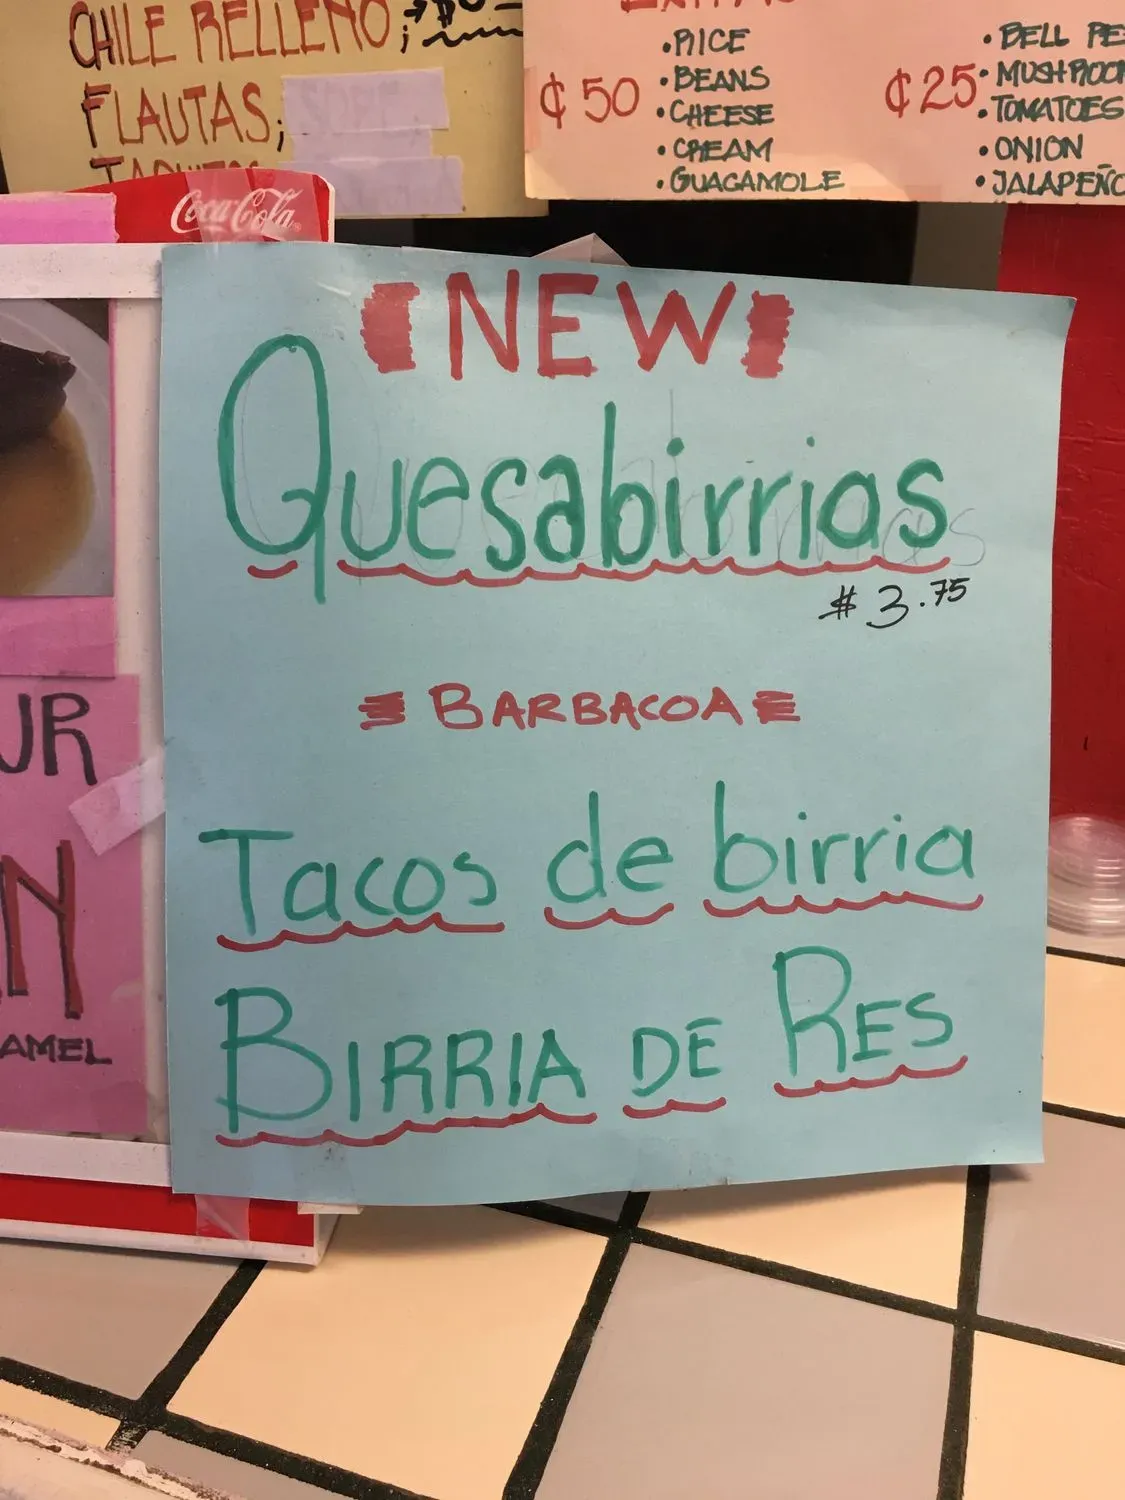 CHILE RELLENO;
FLAUTAS;
¢50
• RICE
• BEANS
• CHEESE
• CREAM
• GUACAMOLE
¢25
• BELL
• TOMATOES
• ONION
• JALAPEÑO
Coca-Cola
NEW
Quesabirrias
$3.75
BARBACOA
Tacos de birria
BIRRIA DE RES